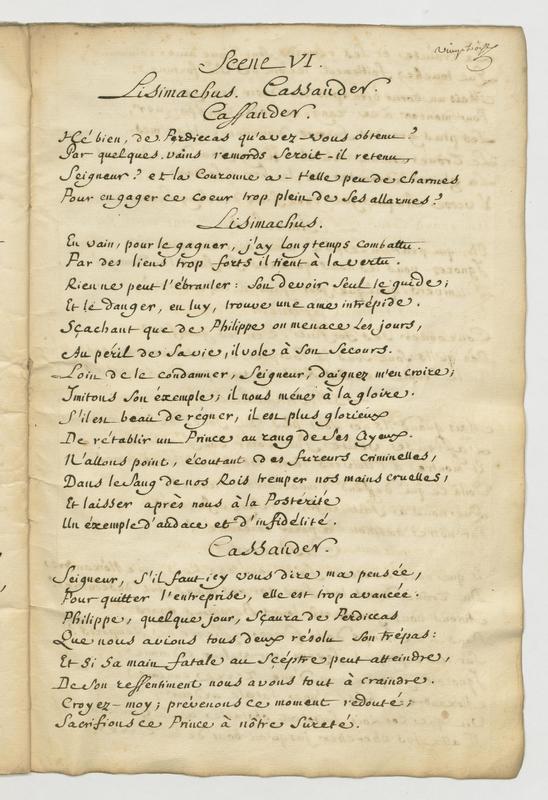 vingt trois
Scene VI.
Lisimachus. Cassander.
Cassander.
Hé bien, de Perdiccas qu'avez-vous obtenu?
Par quelques vains remords Seroit-il retenu,
Seigneur? et la Couronne a-t'elle peu de charmes
Pour engager ce coeur trop plein de Ses allarmes?
Lisimachus.
En vain, pour le gagner, j'ay longtemps combattu.
Par des liens trop forts il tient à la vertu.
Rien ne peut l'ébranler: Son devoir Seul le guide;
Et le danger, en luy, trouve une ame intrépide.
Sçachant que de Philippe on menace les jours,
Au péril de Sa vie, il vole à Son Secours.
Loin de le condamner, Seigneur, daignez m'en croire;
Imitons Son éxemple; il nous méne à la gloire.
S'il est beau de régner, il est plus glorieux
De rétablir un Prince au rang de Ses Ayeux.
N'allons point, écoutant des fureurs criminelles,
Dans le Sang de nos Rois tremper nos mains cruelles,
Et laisser après nous à la Postérité
Un éxemple d'audace et d'infidélité.
Cassander.
Seigneur, S'il faut icy vous dire ma pensée,
Pour quitter l'entreprise, elle est trop avancée.
Philippe, quelque jour, Sçaura de Perdiccas
Que nous avions tous deux résolu Son trépas:
Et Si Sa main fatale au Scéptre peut atteindre,
De Son ressentiment nous avons tout à craindre.
Croyez-moy; prévenons ce moment redouté;
Sacrifions ce Prince à nôtre Sûreté.